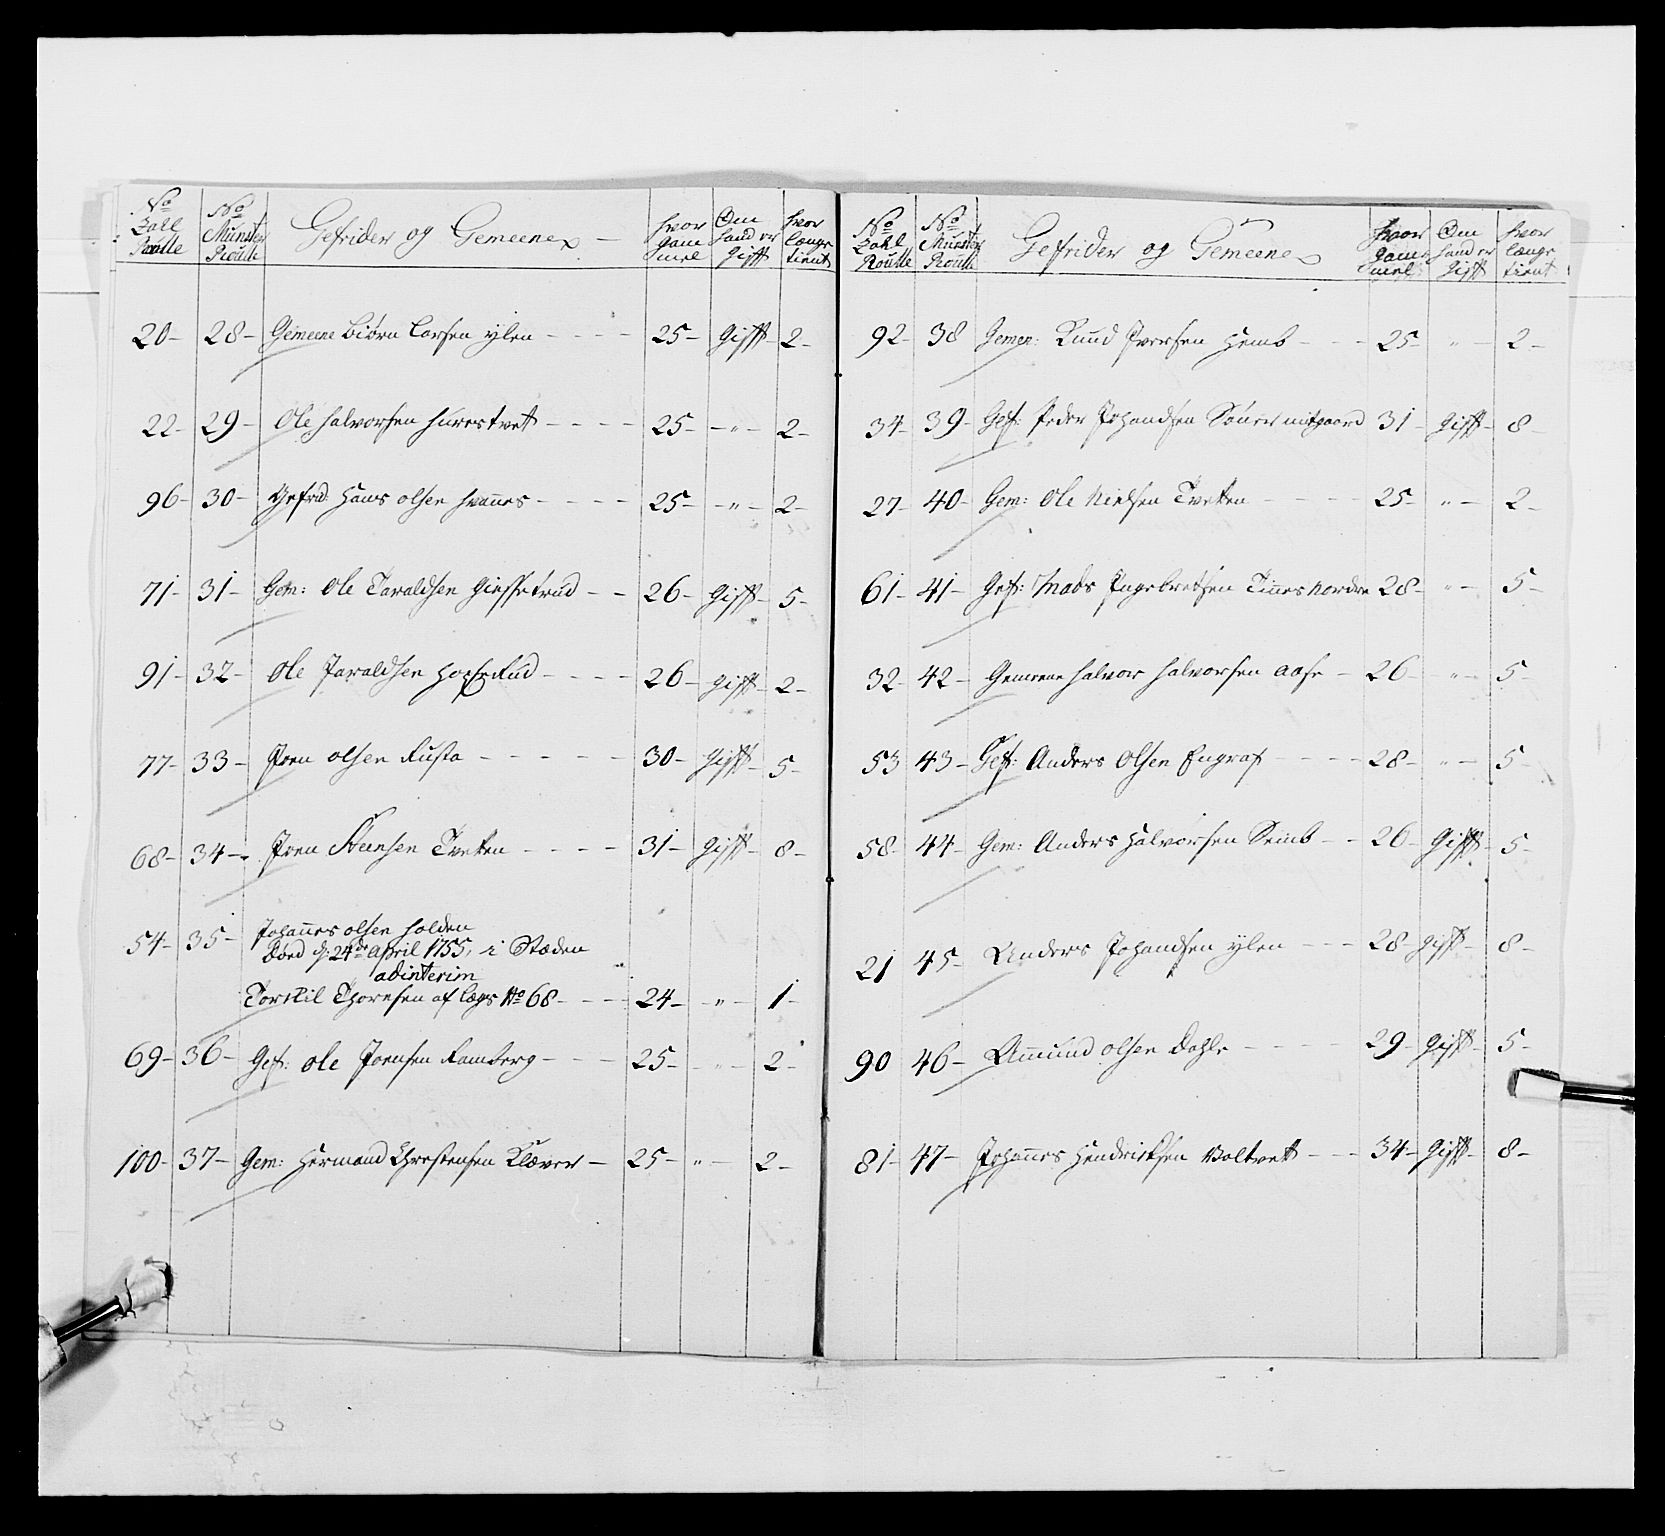 No Zall Roulle | No Münster Roulle | Gefrider og Gemeene | hvor gammel | Om hand er gift | hvor længe tient
20 - 28 - Gemeene Biørn Larsen ylen - - - - 25 - Gifft - 2 -
22 - 29 - Ole Halvorsen Hurestvet - - - - 25 - " - 2 -
96 - 30 - Gefrid: Hans Olsen - - - - 25 - " - 2 -
71 - 31 - Gem: Ole Taraldsen - - 26 - Gifft - 5 -
91 - 32 - Ole Taraldsen - - - - 26 - gifft - 2 -
77 - 33 - Jven Olsen Rusta - - - - - 30 - gifft - 5 -
68 - 34 - Jven Steensen Tveten - - - - 31 - gifft - 8 -
54 - 35 - Johannes Olsen Holden
Død d: 24de April 1755, i Stæden
adinterim
Torkil Thoresen af Lægs No 68 - - - 24 - " - 1 -
69 - 36 - Gef: Ole Jvensen Ramberg - - - 25 - " - 2 -
100 - 37 - Gem: Hermand Christensen Klæver - 25 - " - 2 -
No Zahl Roulle | No Münster Roulle | Gefrider og Gemeene | hvor gammel | Om hand er gift | hvor længe tient
92 - 38 Gemen: Knud Iversen Hemb - - - 25 - " - 2 -
34 - 39 - Gef: Peder Johandsen mitgaard 31 - gifft - 8 -
27 - 40 - Gem: Ole Nielsen Tveten - - - - 25 - " - 2 -
61 - 41 - Gef: Mads Ingebretsen Tinnes Nordre 28 - " - 5 -
32 - 42 - Gemeene Halvor Halvorsen Aase - 26 - " - 5 -
53 43 - Gef: Anders Olsen Engraf - - - - 28 - " - 5 -
58 - 44 - Gem: Anders Halvorsen Semb - - 26 - Gifft - 5 -
21 45 - Anders Johandsen ylen - - - 28 - gifft - 8 -
90 46 - Amund Olsen Dahle - - - - 29 - gifft - 5 -
81 - 47 - Johannes Hendricksen Boltvett - - - 34 - gifft - 8 -